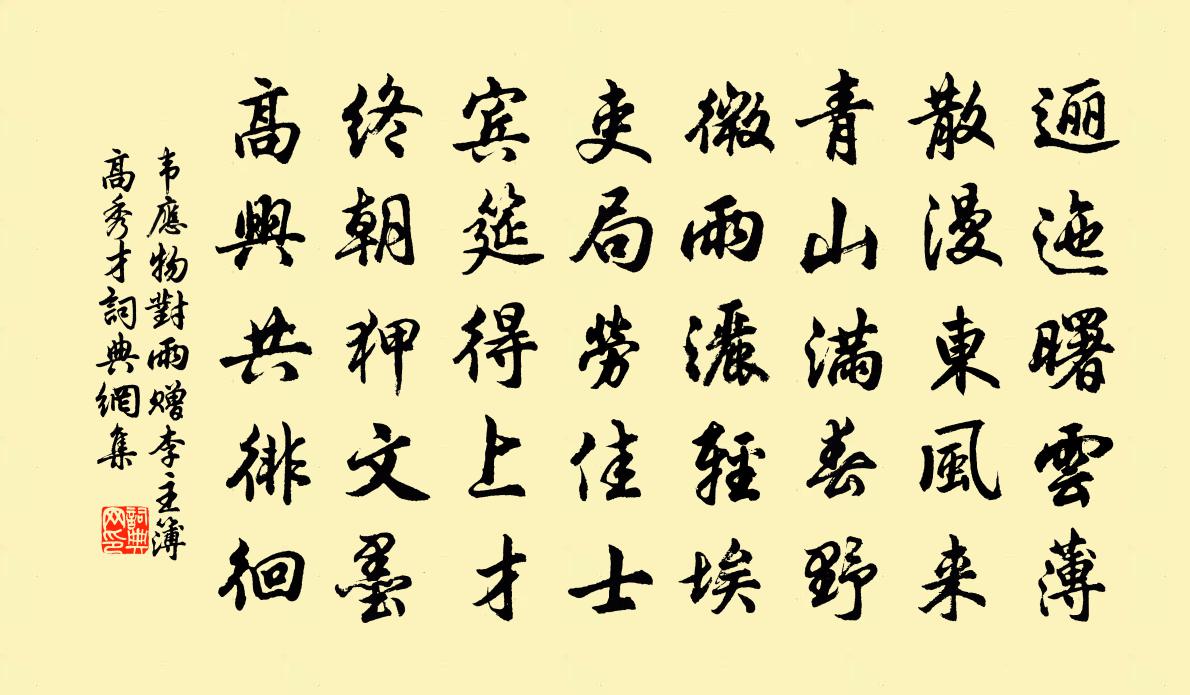 逦迤曙雲薄
散漫東風来
青山满春野
微雨灑輕埃
吏局勞佳士
宾筵得上才
终朝狎文墨
高興共徘徊
韦應物對雨赠李主簿
高秀才詞典網集
詞典
网印